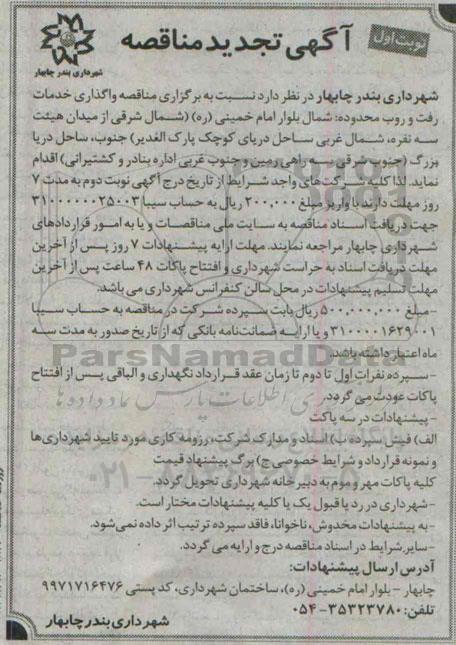 نوبت اول
آگهی تجدید مناقصه
شهرداری بندر چابهار
شهرداری بندر چابهار در نظر دارد نسبت به برگزاری مناقصه واگذاری خدمات
رفت و روب محدوده: شمال بلوار امام خمینی (ره) (شمال شرقی از میدان هیئت
سه نقره، شمال غربی ساحل دریای کوچک پارک الغدیر) جنوب، ساحل دریا
بزرگ (جنوب شرقی سه راهی رمین و جنوب غربی اداره بنادر و کشتیرانی) اقدام
نماید. لذا کلیه شرکت‌های واجد شرایط از تاریخ درج آگهی نوبت دوم به مدت ۷
روز مهلت دارند با واریز مبلغ ۲۰۰,۰۰۰ ریال به حساب سیبا
جهت دریافت اسناد مناقصه به سایت ملی مناقصات و یا به امور قراردادهای
شهرداری چابهار مراجعه نمایند. مهلت ارایه پیشنهادات ۷ روز پس از آخرین
مهلت دریافت اسناد به حراست شهرداری و افتتاح پاکات ۴۸ ساعت پس از آخرین
مهلت تسلیم پیشنهادات در محل سالن کنفرانس شهرداری می باشد.
-مبلغ ۵۰۰,۰۰۰,۰۰۰ ریال بابت سپرده شرکت در مناقصه به حساب سیبا
و یا ارایه ضمانت‌نامه بانکی که از تاریخ صدور به مدت سه
ماه اعتبار داشته باشد.
-سپرده نفرات اول تا دوم تا زمان عقد قرارداد نگهداری و الباقی پس از افتتاح
پاکات عودت می گردد.
-پیشنهادات در سه پاکت
الف) فیش سپرده ب) اسناد و مدارک شرکت، رزومه کاری مورد تایید شهرداری‌ها
و نمونه قرارداد و شرایط خصوصی ج) برگ پیشنهاد قیمت
کلیه پاکات مهر و موم به دبیرخانه شهرداری تحویل گردد.
-شهرداری در رد یا قبول یک یا کلیه پیشنهادات مختار است.
-به پیشنهادات مخدوش، ناخوانا، فاقد سپرده ترتیب اثر داده نمی‌شود.
-سایر شرایط در اسناد مناقصه درج و ارایه می گردد.
آدرس ارسال پیشنهادات:
چابهار - بلوار امام خمینی (ره)، ساختمان شهرداری، کد پستی ۹۹۷۱۷۱۶۴۷۶
تلفن: ۳۵۳۲۳۷۸۰-۰۵۴
شهرداری بندر چابهار
ParsNamadData